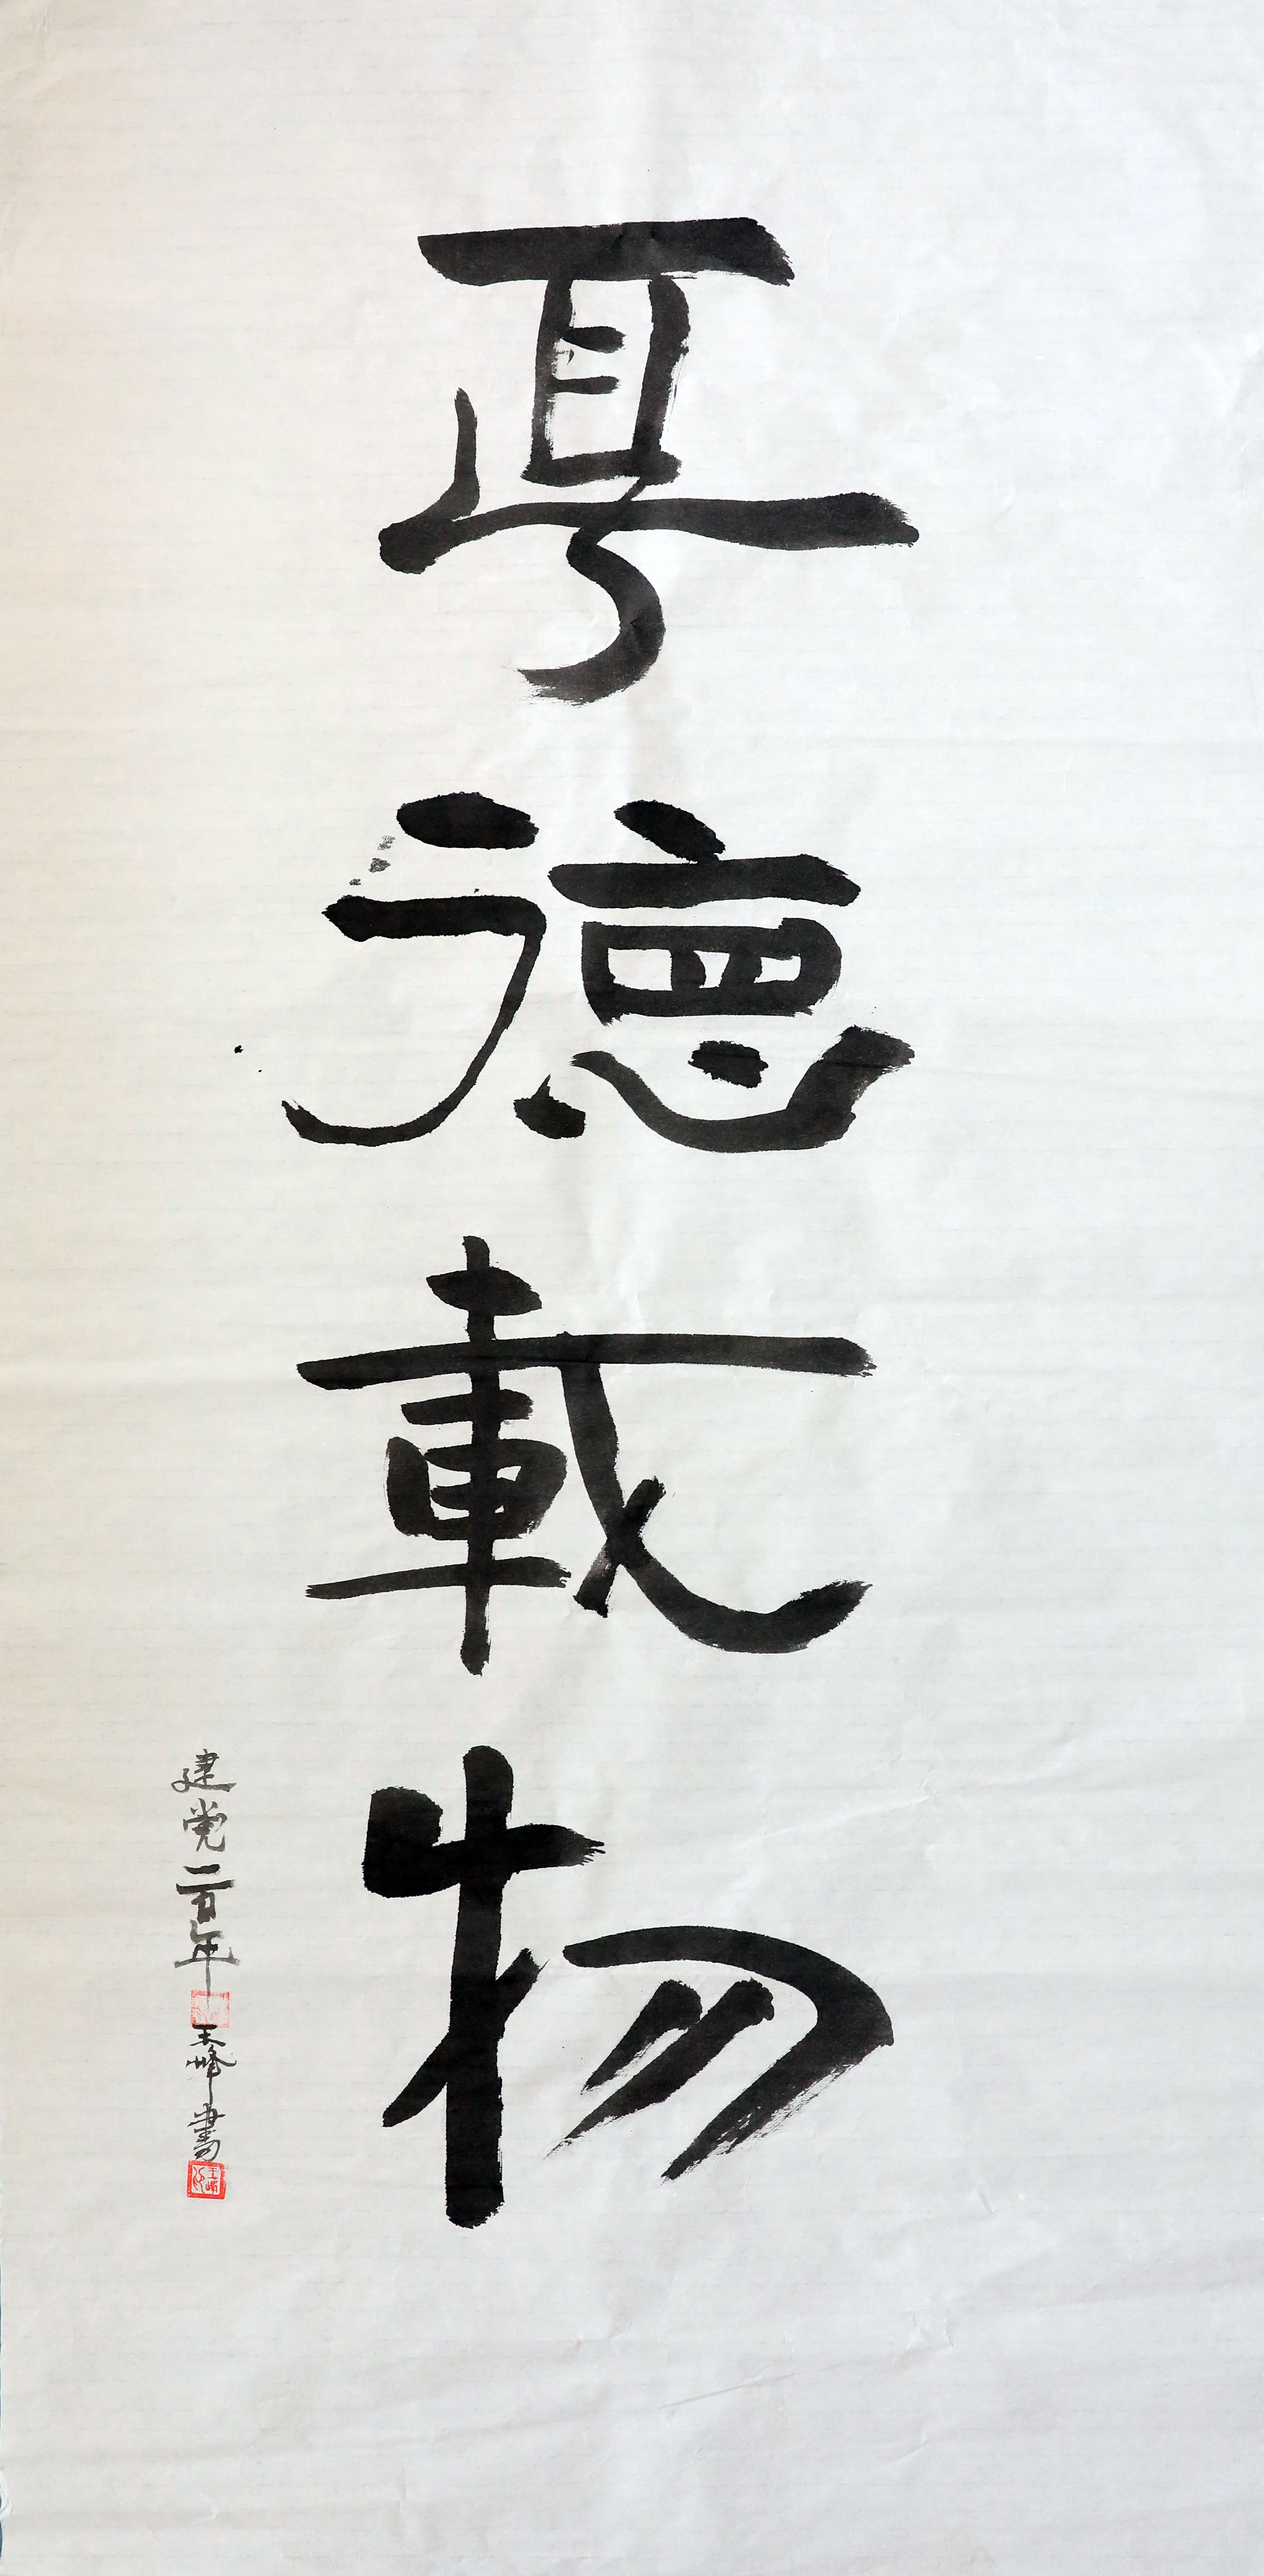 厚德載物
建党一百年
王峰書